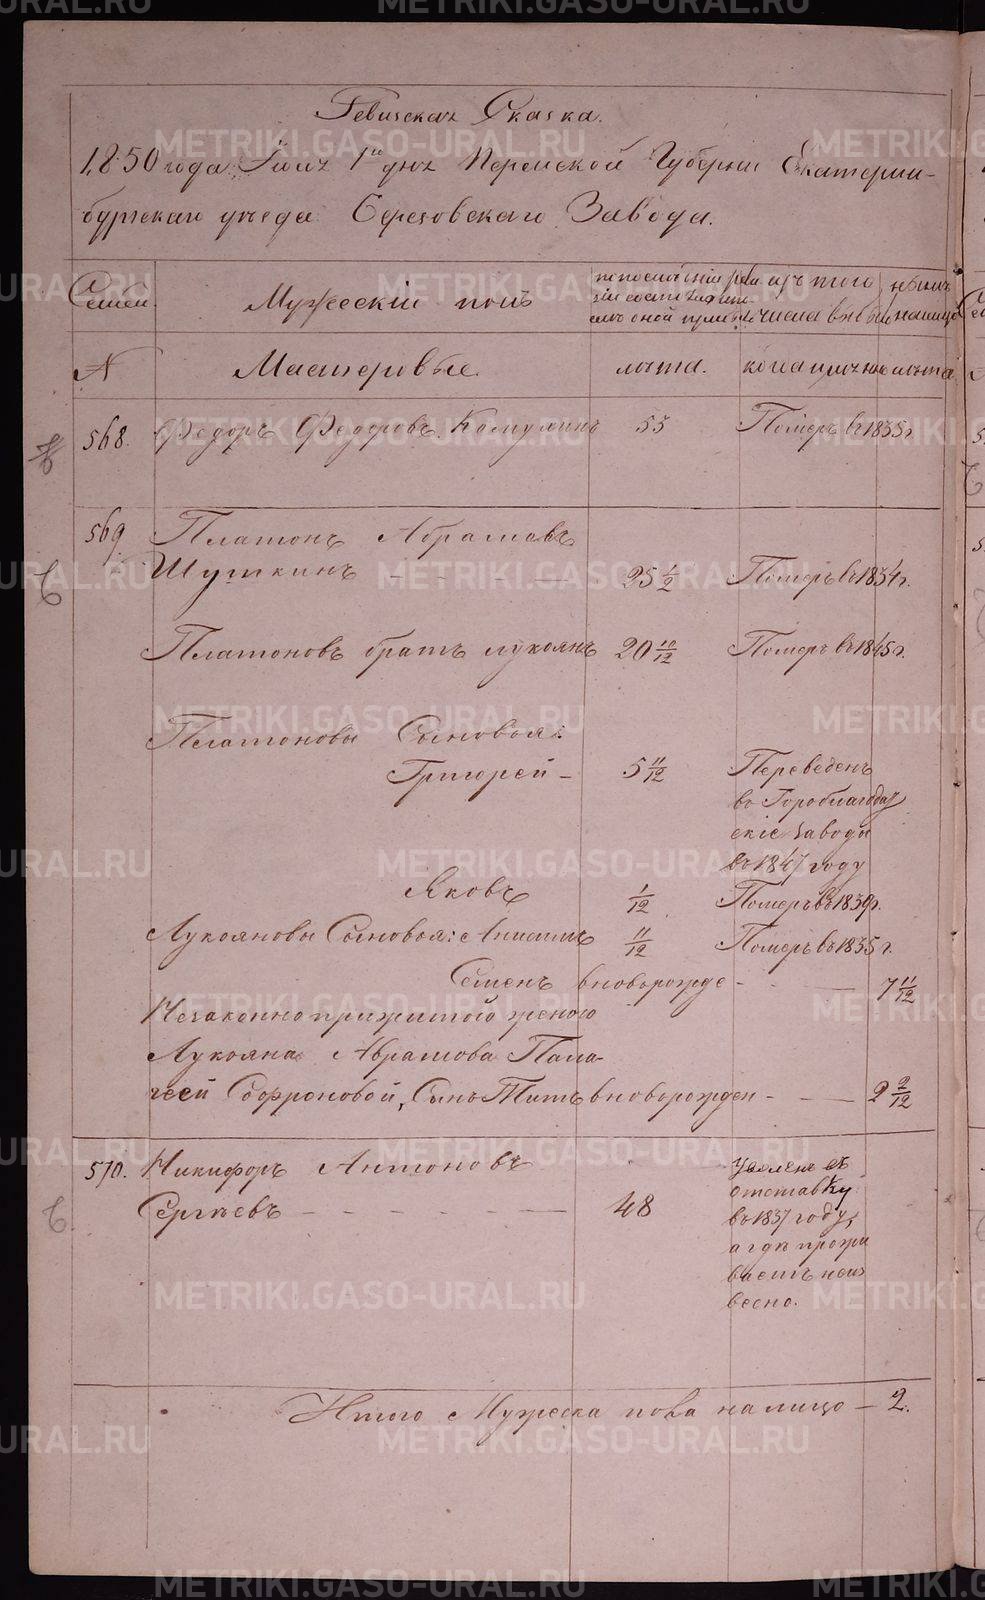 Ревизская Сказка.
1850 года Июня 1го дня Пермской Губернии Екатерин-
бургскаго уезда Березовскаго Завода.
Семьи.
Мужескій полъ
изъ того
числа выбыло
ныне
налицо
№
Мастеровые.
лета.
когда именно
лета
568.
Федоръ Федоровъ Кокулинъ
55
Померъ въ 1835 г
569.
Платонъ Абрамовъ
Шуткинъ
25 1/2
Померъ въ 1834 г.
Платоновъ братъ Лукоянъ
20 11/12
Померъ въ 1845 г.
Платоновы Сыновья:
Григорей -
5 11/12
Переведенъ
во Гороблагодат
скіе заводы
въ 1847 году
Яковъ
1/12
Померъ въ 1839 г.
Лукояновы Сыновья: Анисимъ
11/12
Померъ въ 1835 г.
Семенъ вноворожде -
7 11/12
Незаконноприжитого женою
Лукояна Аврамова Пала-
геей Софроновой, Сынъ Титъ вноворожден -
2 2/12
570.
Никифоръ Антоновъ
Сергеевъ
48
Уволенъ въ
отставку
въ 1837 году,
а где прожи
ваетъ неиз
весно.
Итого Мужеска пола налицо - 2.
METRIKI.GASO-URAL.RU